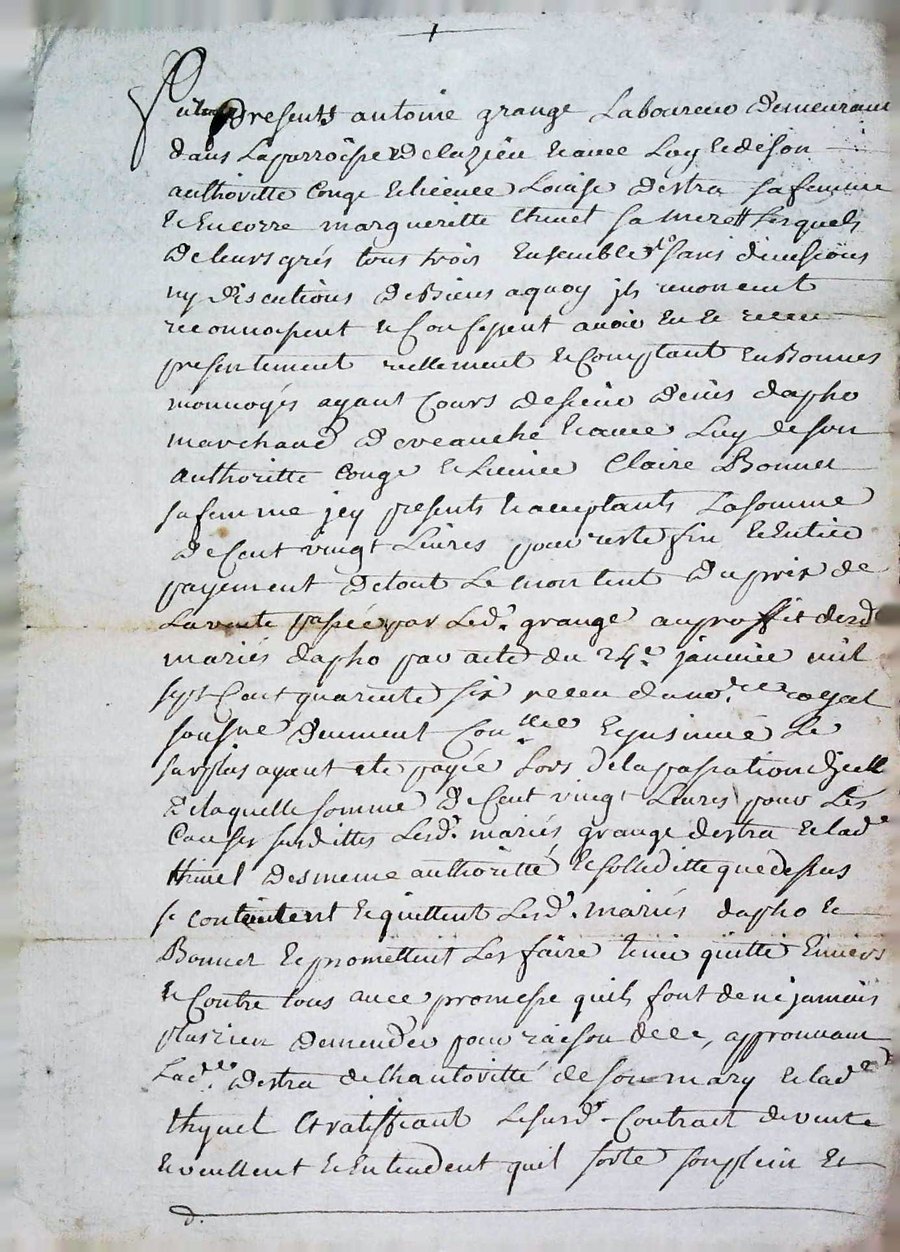 furent Presents antoine grange Laboureur Demeurant
dans Laparroisse De Lazieu & avec Luy & de son
authoritte Congé & licence Louise Destra sa femme
& Encorre margueritte thinet sa mere Lesquels
De leurs grés tous trois Ensemble sans divisions
ny Discutions De Biens aquoy jls renoncent
reconnoissent & Confessent avoir Eu & receu
presentement reellement & Comptant En Bonnes
monnoyés ayant Cours de sieur Denis dapho
marchand De veauche & avec Luy de son
authoritte Congé & Licence Claire Bonnet
sa femme jcy presents & acceptants La somme
De Cent vingt Livres pour reste fin & Entier
payement De tout Le montent Du prix de
La vente passée par Led.t grange au proffit desd.
mariés dapho par acte du 24.e janvier mil
sept Cent quarente six receu du no.re royal
sousne Deument Con.llé & jnsinué Le
surplus ayant eté payée Lors De la passation djcelle
De laquelle somme De Cent vingt Livres pour Les
Causes susdittes Lesd.ts mariés grange destra & lad.e
thinel Des meme authoritté & solleditte que dessus
se contentent & quittent Lesd.ts mariés dapho &
Bonnet & promettent Les faire tenir quitte Envers
& Contre tous avec promesse quils font de ne jamais
plus rien Demender pour raison de ce, approuvant
Lad.te Destra de Lhautoritté de son mary & lad.e
thynel & ratiffiant Le susd.t Contract de vente
& veullent & Entendent quil sorte son plein &
d.